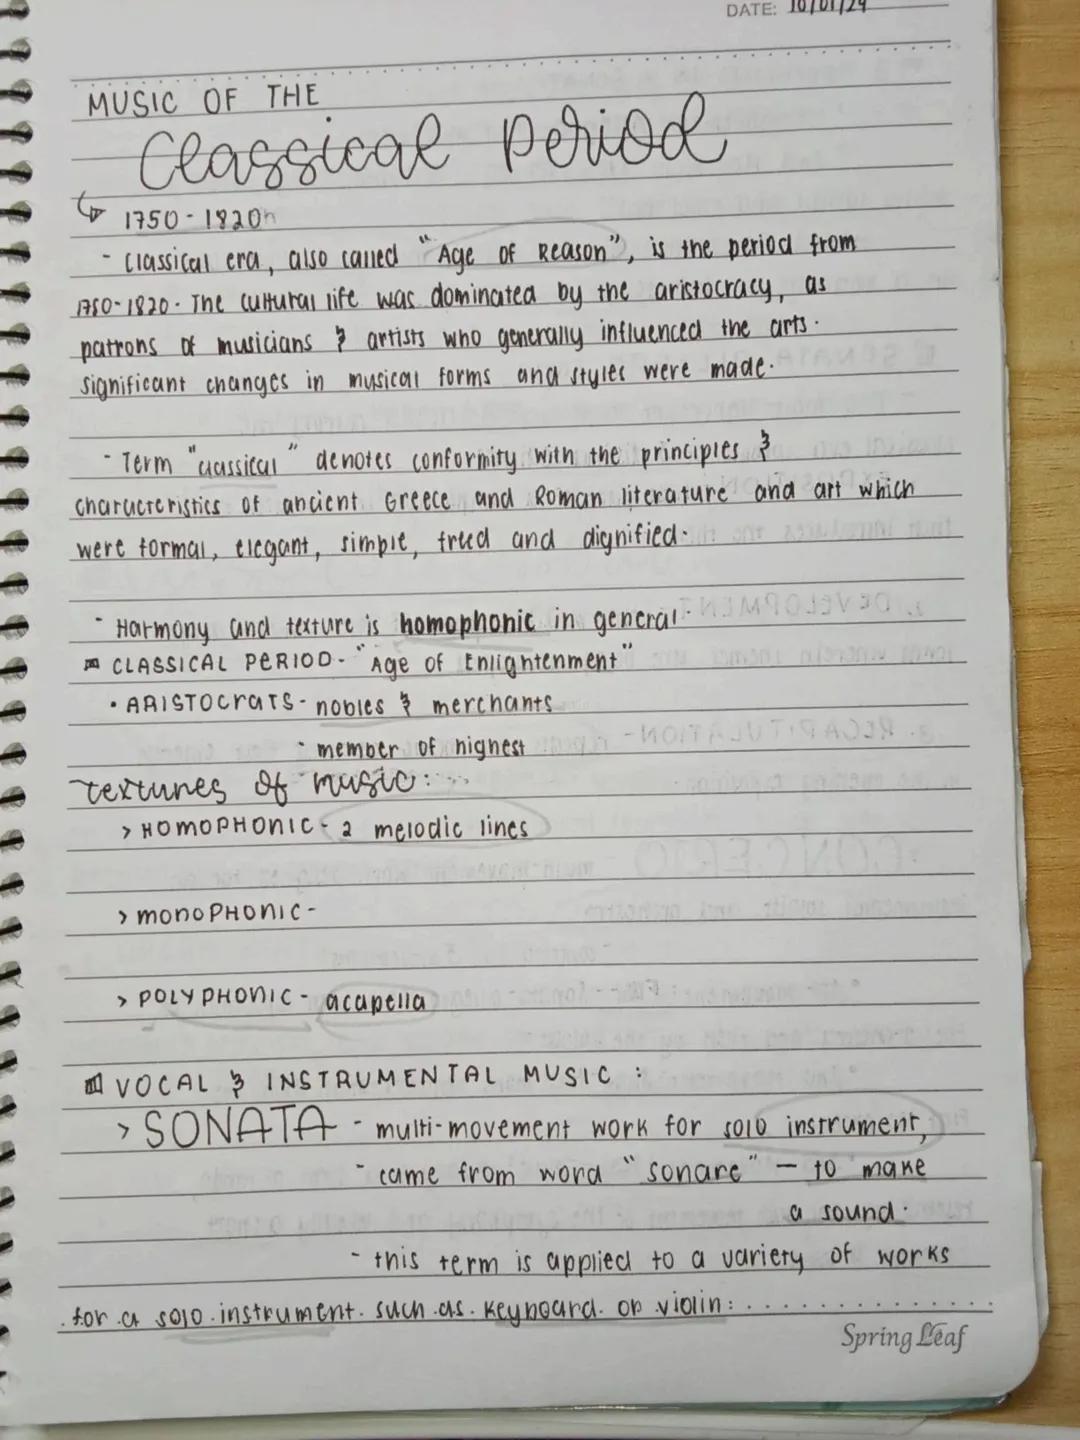 DATE: 10/01/24
MUSIC OF THE
Classical Period
1750-1820
- Classical era, also called "Age of Reason", is the period from
1750-1820. The cultural life was dominated by the aristocracy, as
patrons of musicians & artists who generally influenced the arts.
significant changes in musical forms and styles were made.
- Term "classical" denotes conformity with the principles &
characteristics of ancient Greece and Roman literature and art which
were formal, elegant, simple, freed and dignified.
- Harmony and texture is homophonic in general.
CLASSICAL PERIOD- "Age of Enlightenment"
• ARISTOCRATS- nobles & merchants
- member of highest
textures of music:
> HOMOPHONIC- 2 melodic lines
> MONOPHONIC-
> POLYPHONIC- acapella
VOCAL & INSTRUMENTAL MUSIC :
> SONATA - multi-movement work for solo instrument,
- came from word "sonare" — to make
a sound.
- this term is applied to a variety of works
for a solo instrument such as keyboard or violin:
Spring Leaf